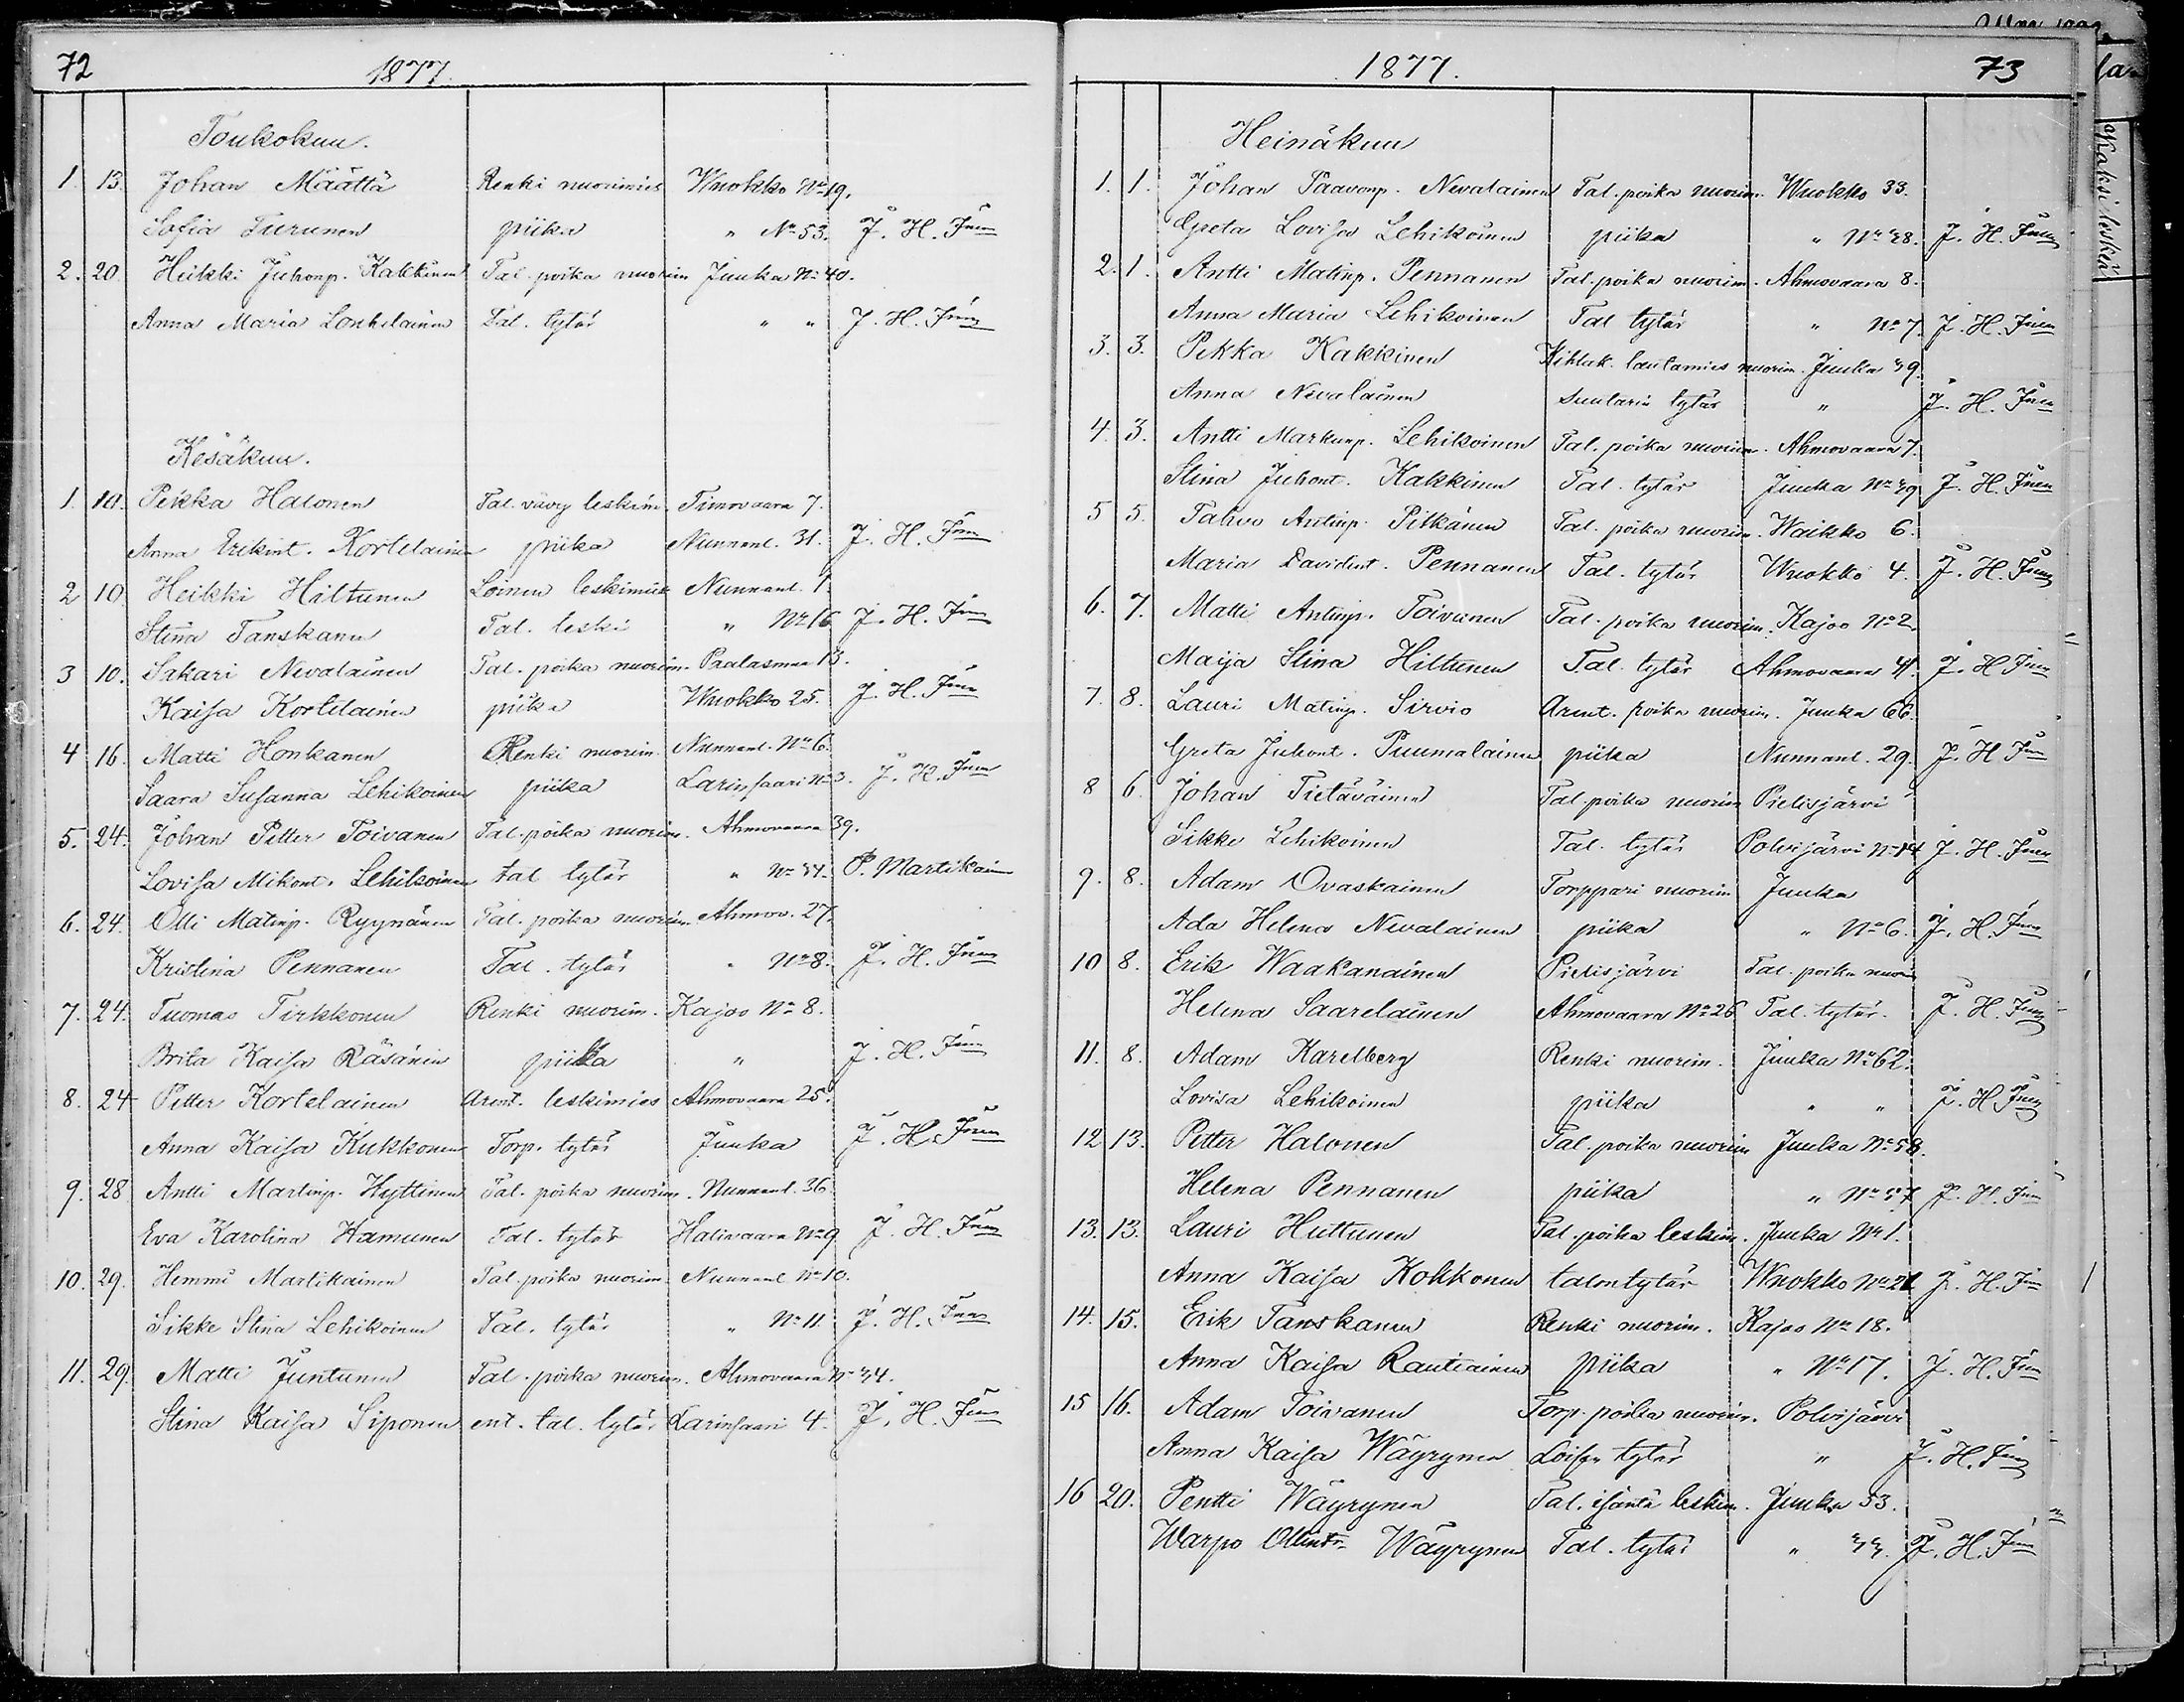 72 1877.
Toukokuu.
1. 13. Johan Määttä Renki nuorimies Wuokko No 19.
Sofia Turunen piika " No 53. J. H.
2. 20. Heikki Juhonp. Kakkinen Tal. poika nuorim Juuka No 40.
Anna Maria Lonkelainen Tal. tytär " " J. H.
Kesäkuu.
1. 10. Pekka Halonen Tal. vävy leskim. Timovaara 7.
Anna Erikint. Kortelainen piika Nunnanl. 31. J. H.
2 10. Heikki Hiltunen Loinen leskimies Nunnanl. 1.
Stina Tanskanen Tal. leski " No 16 J. H.
3 10. Sakari Nevalainen Tal. poika nuorim. Paalasmaa 13.
Kaisa Kortelainen piika Wuokko 25. J. H.
4 16. Matti Honkanen Renki nuorim. Nunnanl. No 6.
Saara Susanna Lehikoinen piika Larinsaari No 3. J. H.
5. 24. Johan Petter Toivanen Tal. poika nuorim. Ahmovaara 39.
Lovisa Mikont. Lehikoinen tal tytär " No 34. P. Martikain
6. 24. Olli Matinp. Ryynänen Tal. poika nuorim. Ahmov. 27.
Kristina Pennanen Tal. tytär " No 8. J. H.
7. 24. Tuomas Tirkkonen Renki nuorim. Kajoo No 8.
Brita Kaisa Räsänen piika " J. H.
8. 24 Petter Kortelainen Arent. leskimies Ahmovaara 25.
Anna Kaisa Kukkonen Torp. tytär Juuka J. H.
9. 28 Antti Martinp. Hyttinen Tal. poika nuorim. Nunnanl. 36.
Eva Karolina Hamunen Tal. tytär Halivaara No 9 J. H.
10. 29. Hemmi Martikainen Tal. poika nuorim. Nunnanl. No 10.
Sikke Stina Lehikoinen Tal. tytär " No 11. J. H.
11. 29. Matti Juntunen Tal. poika nuorim. Ahmovaara No 34.
Stina Kaisa Siponen ent. tal. tytär Larinsaari 4. J. H.
1877. 73
Heinäkuu
1. 1. Johan Paavonp. Nevalainen Tal. poika nuorim. Wuokko 33.
Greta Lovisa Lehikoinen piika " No 38. J. H.
2. 1. Antti Matinp. Pennanen Tal. poika nuorim. Ahmovaara 8.
Anna Maria Lehikoinen Tal tytär " No 7. J. H.
3. 3. Pekka Kakkinen Kihlak. lautamies nuorim. Juuka 39.
Anna Nevalainen Suutarin tytär " J. H.
4. 3. Antti Markunp. Lehikoinen Tal. poika nuorim. Ahmovaara 7.
Stina Juhont. Kakkinen Tal. tytär Juuka No 39 J. H.
5 5. Tahvo Antinp. Pitkänen Tal. poika nuorim. Waikko 6.
Maria Davidint. Pennanen Tal. tytär Wuokko 4. J. H.
6. 7. Matti Antinp. Toivanen Tal. poika nuorim. Kajoo No 2.
Maija Stina Hiltunen Tal. tytär Ahmovaara 41. J. H.
7. 8. Lauri Matinp. Sirviö Arent. poika nuorim. Juuka 66.
Greta Juhont. Puumalainen piika Nunnanl. 29. J. H.
8 6. Johan Tietäväinen Tal. poika nuorim Pielisjärvi
Sikke Lehikoinen Tal. tytär Polvijärvi No 14 J. H.
9. 8. Adam Ovaskainen Torppari nuorim Juuka
Ada Helena Nevalainen piika " No 6. J. H.
10 8. Erik Waakanainen Pielisjärvi Tal. poika nuorim
Helena Saarelainen Ahmovaara No 26 Tal. tytär. J. H.
11. 8. Adam Karelberg Renki nuorim. Juuka No 62.
Lovisa Lehikoinen piika " " J. H.
12 13. Petter Halonen Tal. poika nuorim Juuka No 58.
Helena Pennanen piika " No 37. J. H.
13. 13. Lauri Huttunen Tal. poika leskim. Juuka No 1.
Anna Kaisa Kokkonen talon tytär Wuokko No 21 J. H.
14. 15. Erik Tanskanen Renki nuorim. Kajoo No 18.
Anna Kaisa Rautiainen piika " No 17. J. H.
15 16. Adam Toivanen Torp. poika nuorim. Polvijärvi
Anna Kaisa Wäyrynen Loisen tytär " J. H.
16 20. Pentti Wäyrynen Tal. isäntä leskim. Juuka 53.
Warpo Ollintr. Wäyrynen Tal. tytär " 33. J. H.